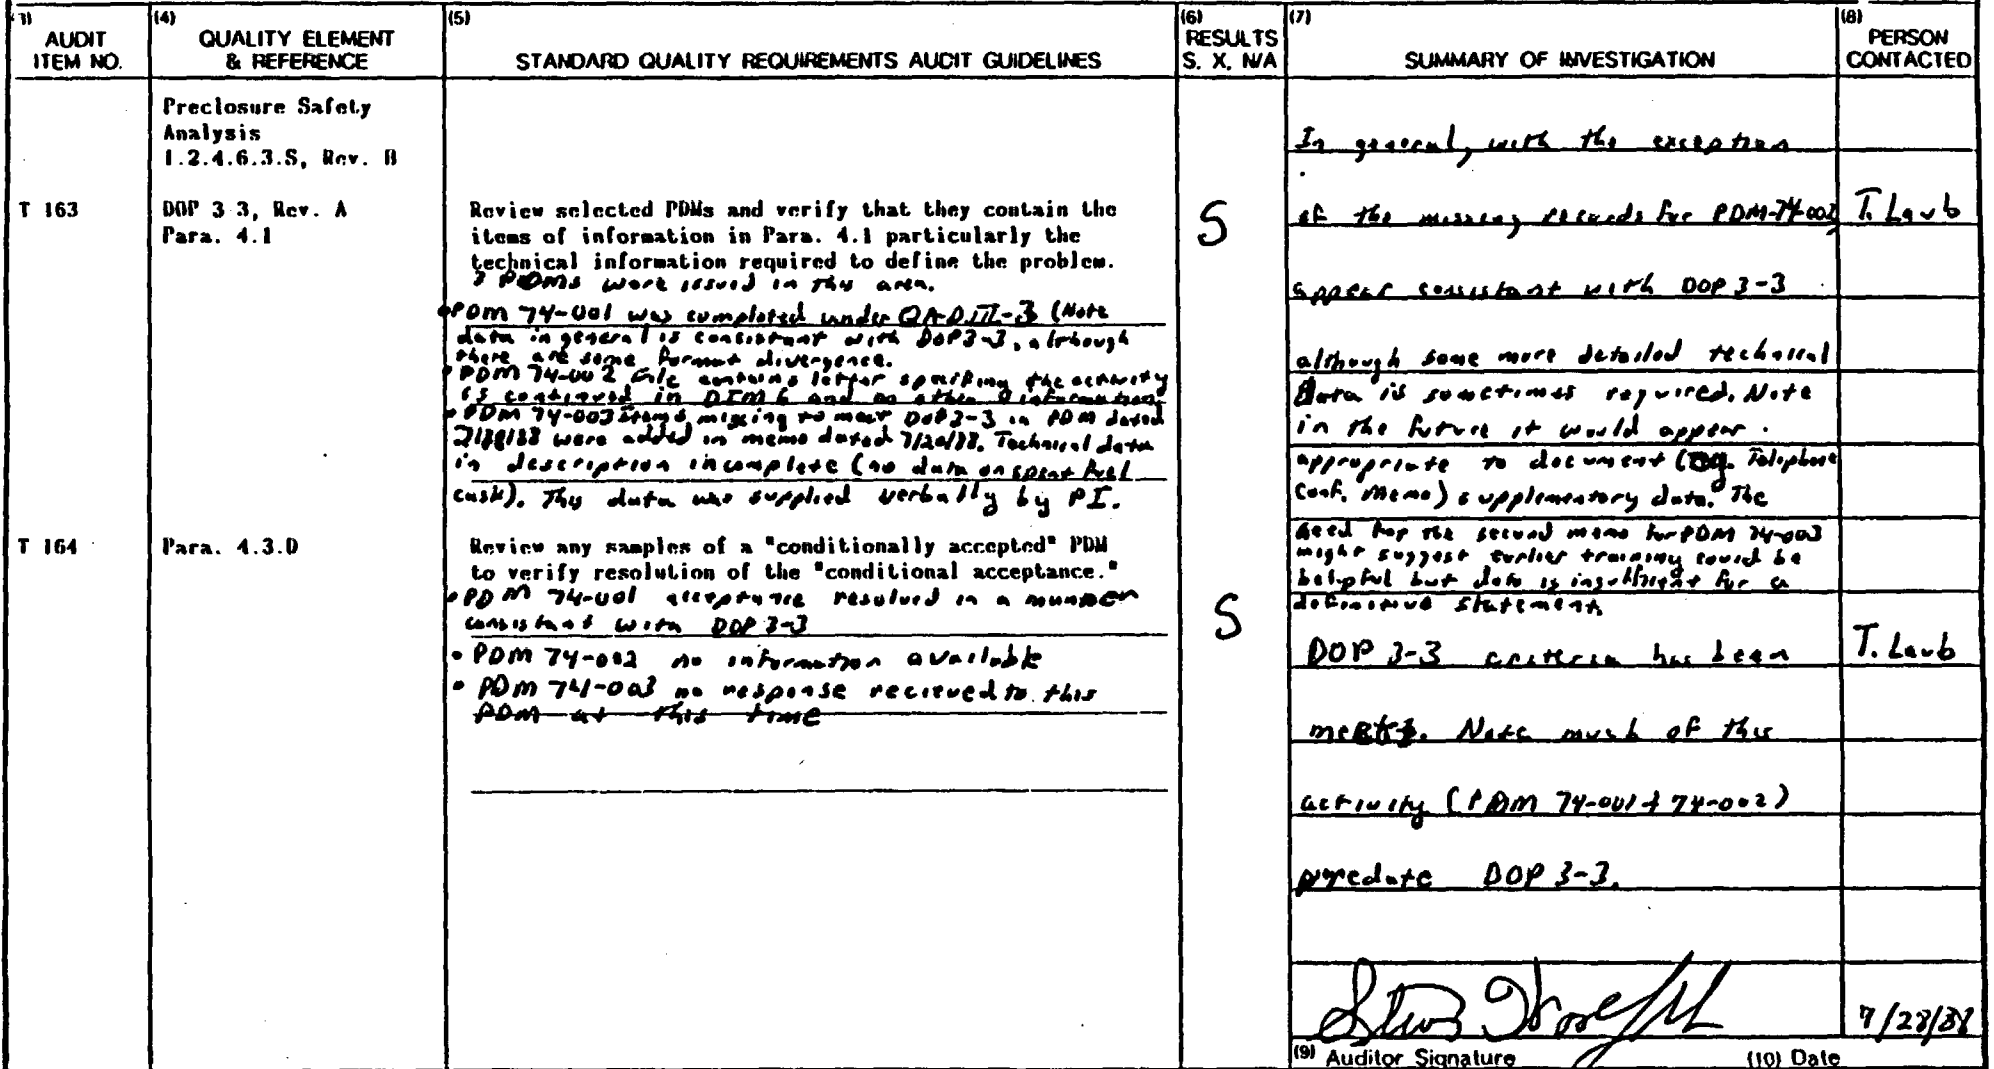 (3)
AUDIT
ITEM NO.
(4)
QUALITY ELEMENT
& REFERENCE
(5)
STANDARD QUALITY REQUIREMENTS AUDIT GUIDELINES
(6)
RESULTS
S. X. N/A
(7)
SUMMARY OF INVESTIGATION
(8)
PERSON
CONTACTED
Preclosure Safety
Analysis
1.2.4.6.3.S, Rev. B
T 163
DOP 3 3, Rev. A
Para. 4.1
Review selected PDMs and verify that they contain the
items of information in Para. 4.1 particularly the
technical information required to define the problem.
PDMs were issued in this area.
PDM 74-001 was completed under QAD III-3 (Note
data in general is consistant with DOP 3-3, although
there are some format divergence.
PDM 74-002 file contains letter specifing the activity
is continued in DIM 6 and no other information.
PDM 74-003 items missing to meet DOP 3-3 in PDM dated
were added in memo dated 7/20/88. Technical data
in description incomplete (no data on spent fuel
cask). This data was supplied verbally by PI.
S
In general, with the exception
of the missing records for PDM-74-002,
appear consistant with DOP 3-3
although some more detailed technical
Data is sometimes required. Note
in the future it would appear
appropriate to document (eg. Telephone
Conf. Memo) supplementary data. The
need for the second memo for PDM 74-003
might suggest earlier training could be
helpful but data is insufficient for a
definitive statement.
T. Laub
T 164
Para. 4.3.D
Review any samples of a "conditionally accepted" PDM
to verify resolution of the "conditional acceptance."
• PDM 74-001 acceptance resolved in a manner
consistant with DOP 3-3
• PDM 74-002 no information available
• PDM 74-003 no response recieved to this
PDM at this time
S
DOP 3-3 criteria has been
Note much of this
activity (PDM 74-001 & 74-002)
predate DOP 3-3.
T. Laub
7/28/88
(9) Auditor Signature
(10) Date